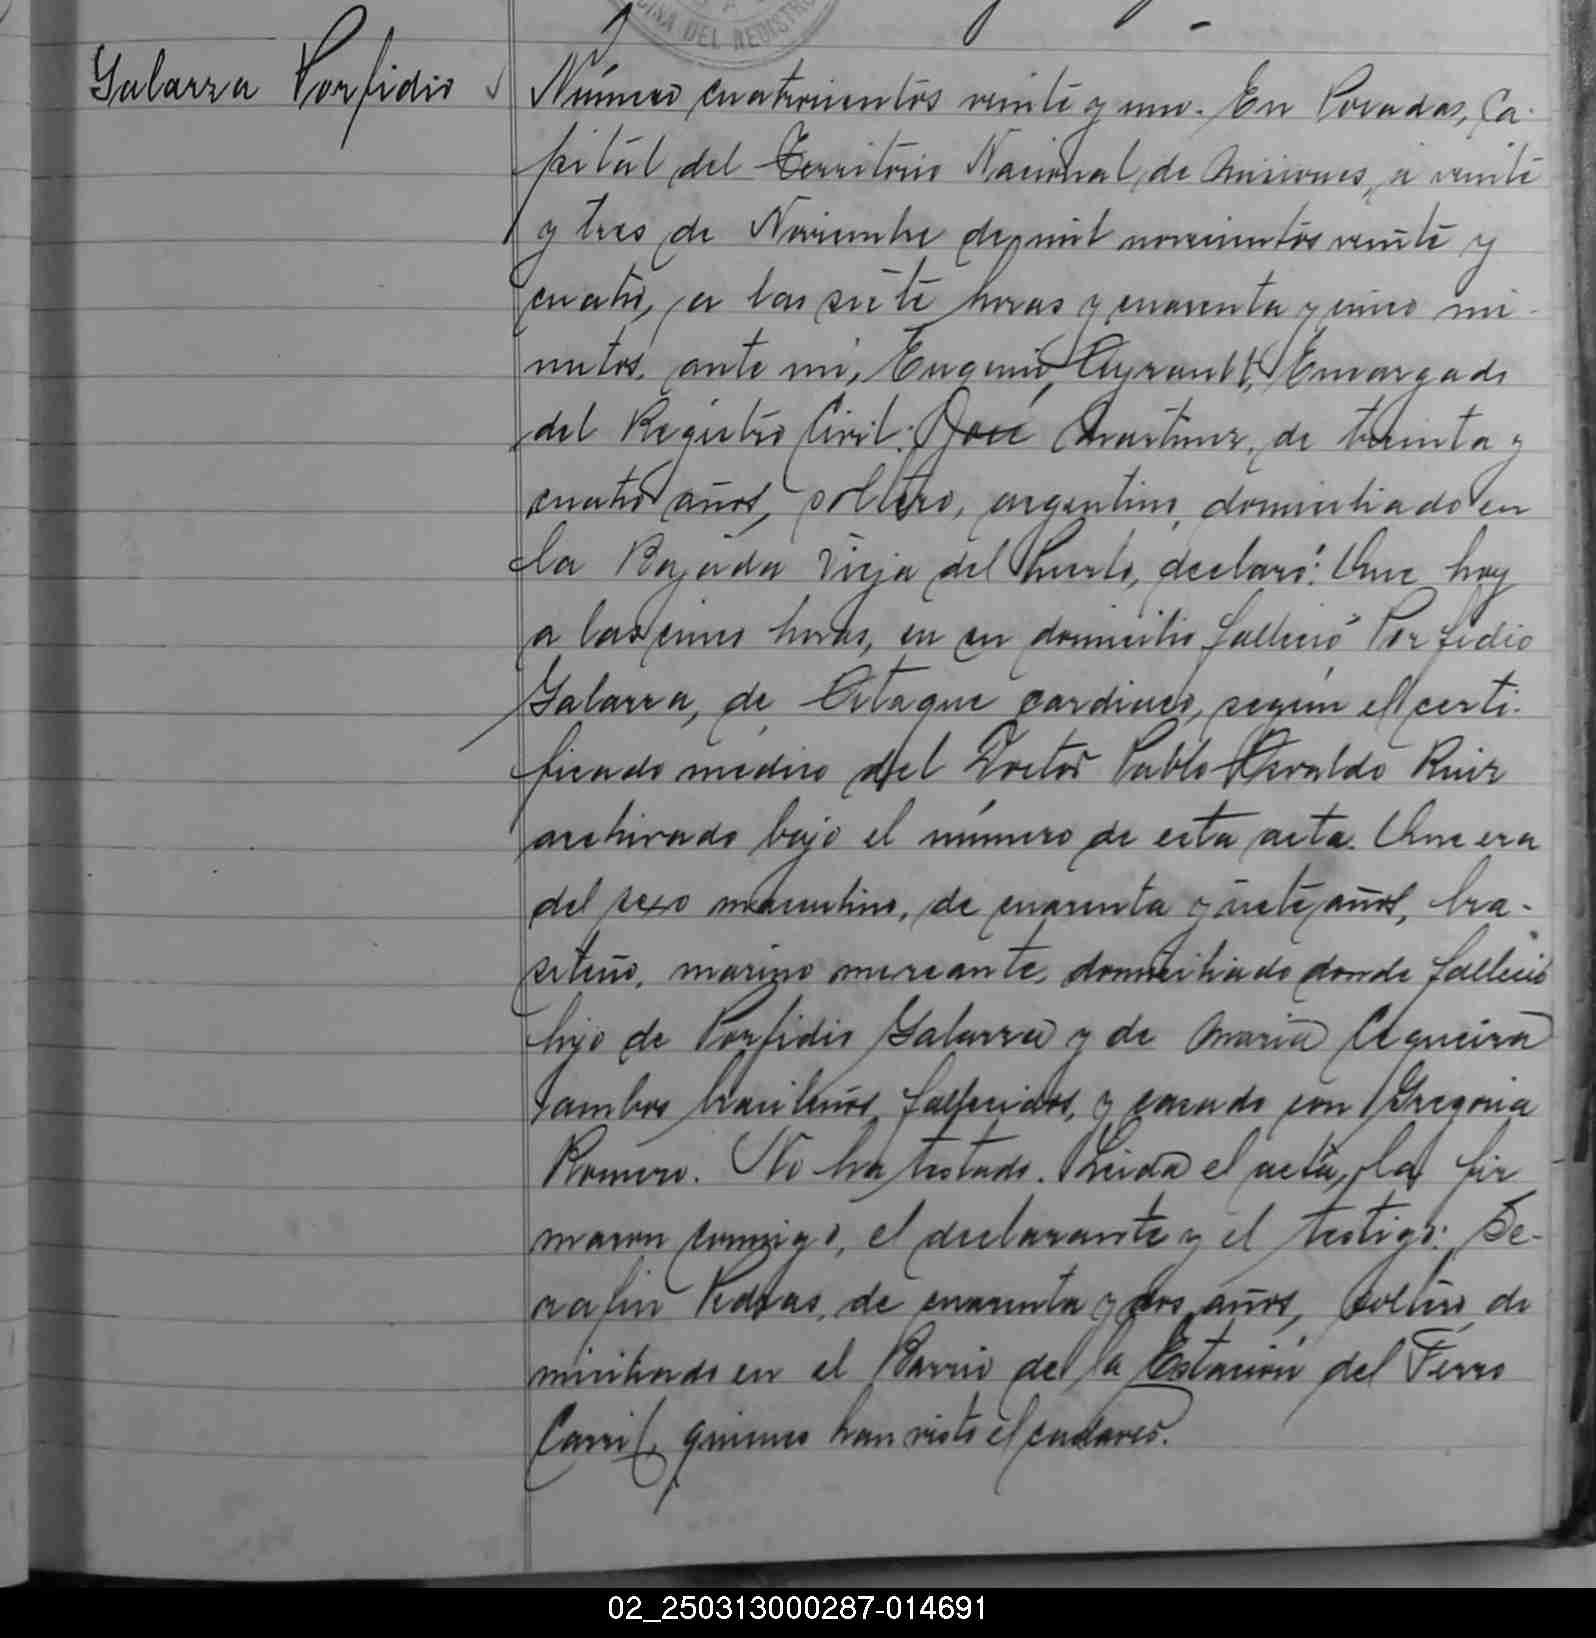 INA DEL REGISTRO
Galarza Porfidio
Número cuatrocientos veinte y uno. En Posadas, Ca-
pital del Territorio Nacional de Misiones, a veinte
y tres de Noviembre de mil novecientos veinte y
cuatro, a las siete horas y cuarenta y cinco mi-
nutos, ante mi, Eugenio Ayrault, Encargado
del Registro Civil: José Martinez, de treinta y
cuatro años, soltero, argentino, domiciliado en
la Bajada Vieja del Puerto, declaró: Que hoy
a las cinco horas, en su domicilio falleció Porfidio
Galarza, de Ataque cardiaco, según el certi-
ficado médico del Doctor Pablo Osvaldo Ruiz
archivado bajo el número de esta acta. Que era
del sexo masculino, de cuarenta y siete años, bra-
sileño, marino mercante, domiciliado donde falleció
hijo de Porfidio Galarza y de Maria Cequeira
ambos brasileños, fallecidos, y casado con Gregoria
Romero. No ha testado. Leida el acta, la fir
maron conmigo, el declarante y el testigo: Se-
rafin Pedras, de cuarenta y dos años, soltero, do
miciliado en el Barrio de la Estación del Ferro
Carril, quienes han visto el cadaver.
02_250313000287-014691